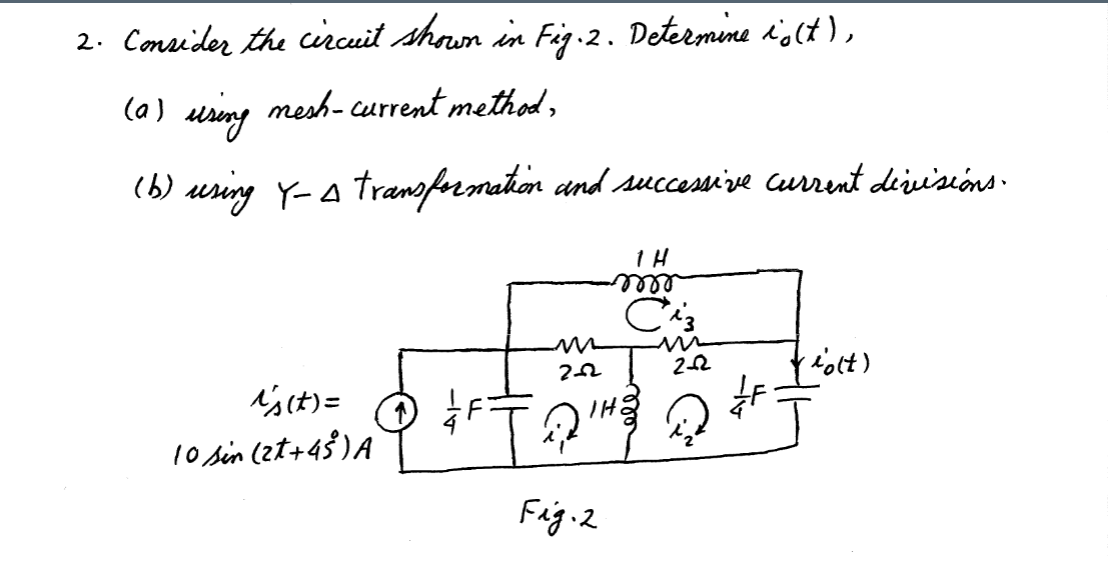 2. Consider the circuit shown in Fig.2. Determine i₀(t),
(a) using mesh-current method,
(b) using Y-Δ transformation and successive current divisions.
1 H
i₃
2Ω 2Ω
i₀(t)
iₛ(t)=
1/4 F 1H 1/4 F
i₁ i₂
10 sin (2t+45°) A
Fig.2